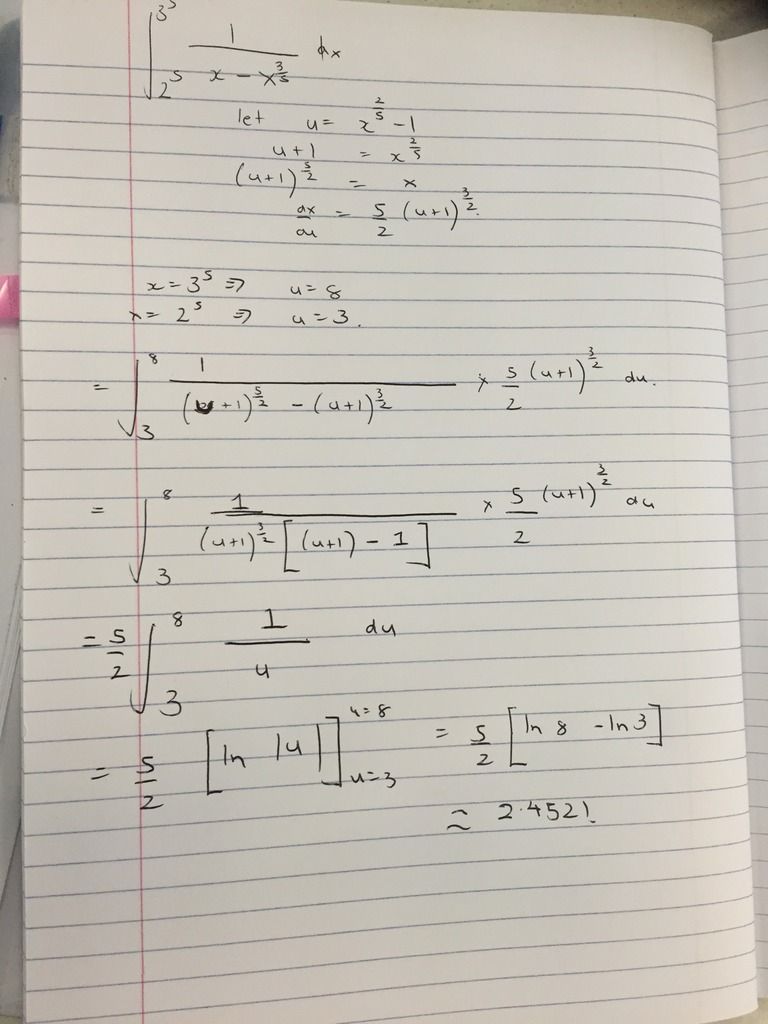 ∫_{2^5}^{3^5} 1/(x - x^{3/5}) dx
let u = x^{2/5} - 1
u+1 = x^{2/5}
(u+1)^{5/2} = x
dx/du = 5/2 (u+1)^{3/2}.
x = 3^5 ⇒ u = 8
x = 2^5 ⇒ u = 3.
= ∫_3^8 1/((u+1)^{5/2} - (u+1)^{3/2}) × 5/2 (u+1)^{3/2} du.
= ∫_3^8 1/((u+1)^{3/2} [(u+1) - 1]) × 5/2 (u+1)^{3/2} du
= 5/2 ∫_3^8 1/u du
= 5/2 [ln |u|]_{u=3}^{u=8} = 5/2 [ln 8 - ln 3]
≈ 2.4521.